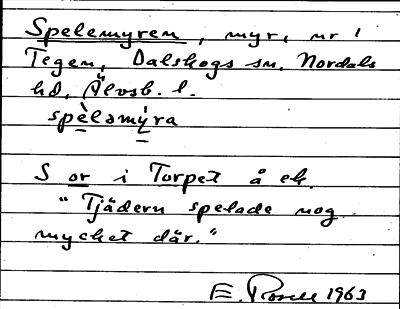 Spelemyren, myr, nr 1
Tegen, Dalskogs sn. Nordals
hd, Älvsb. l.
spèləmýra
S or i Torpet å ek.
"Tjädern spelade nog
mycket där."
E. Rosell 1963